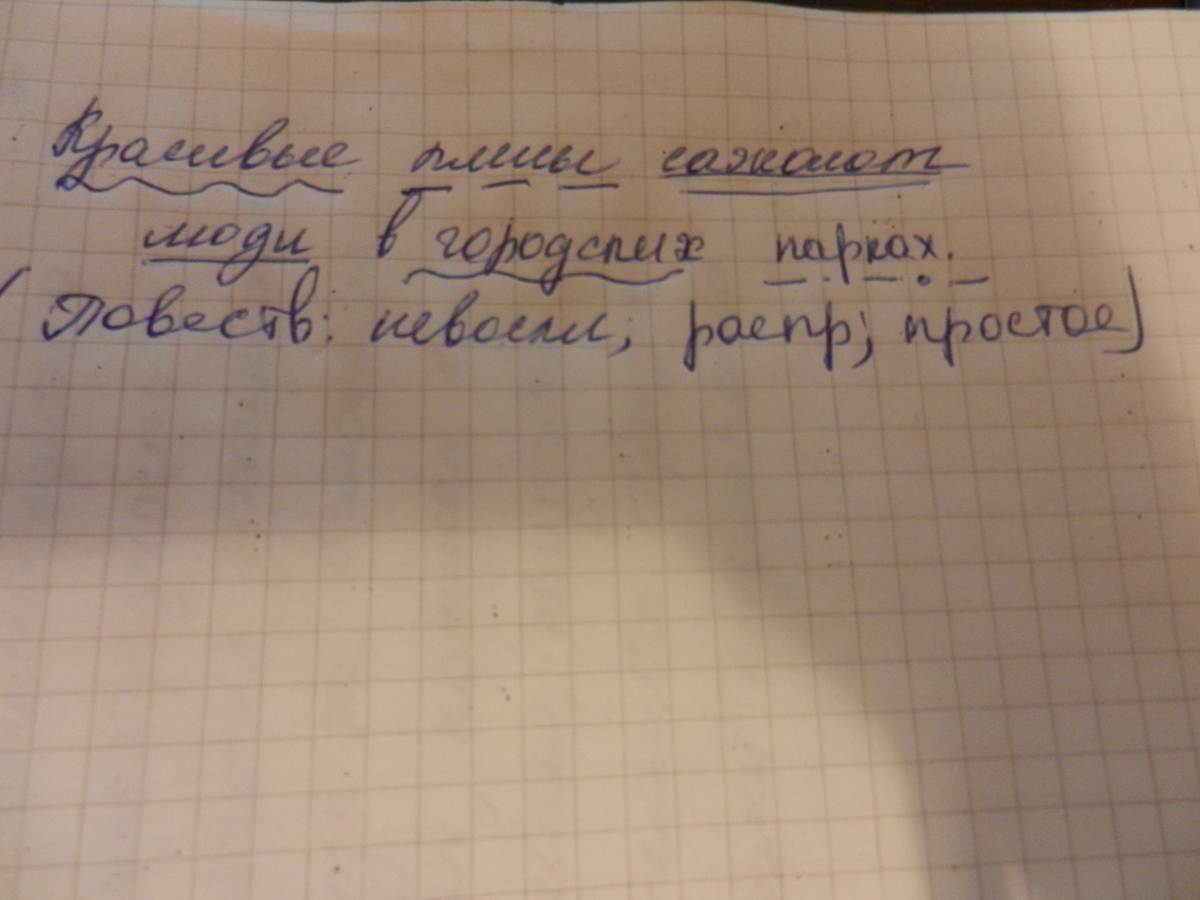 Красивые липы сажают
люди в городских парках.
(Повеств: невоскл; распр; простое)